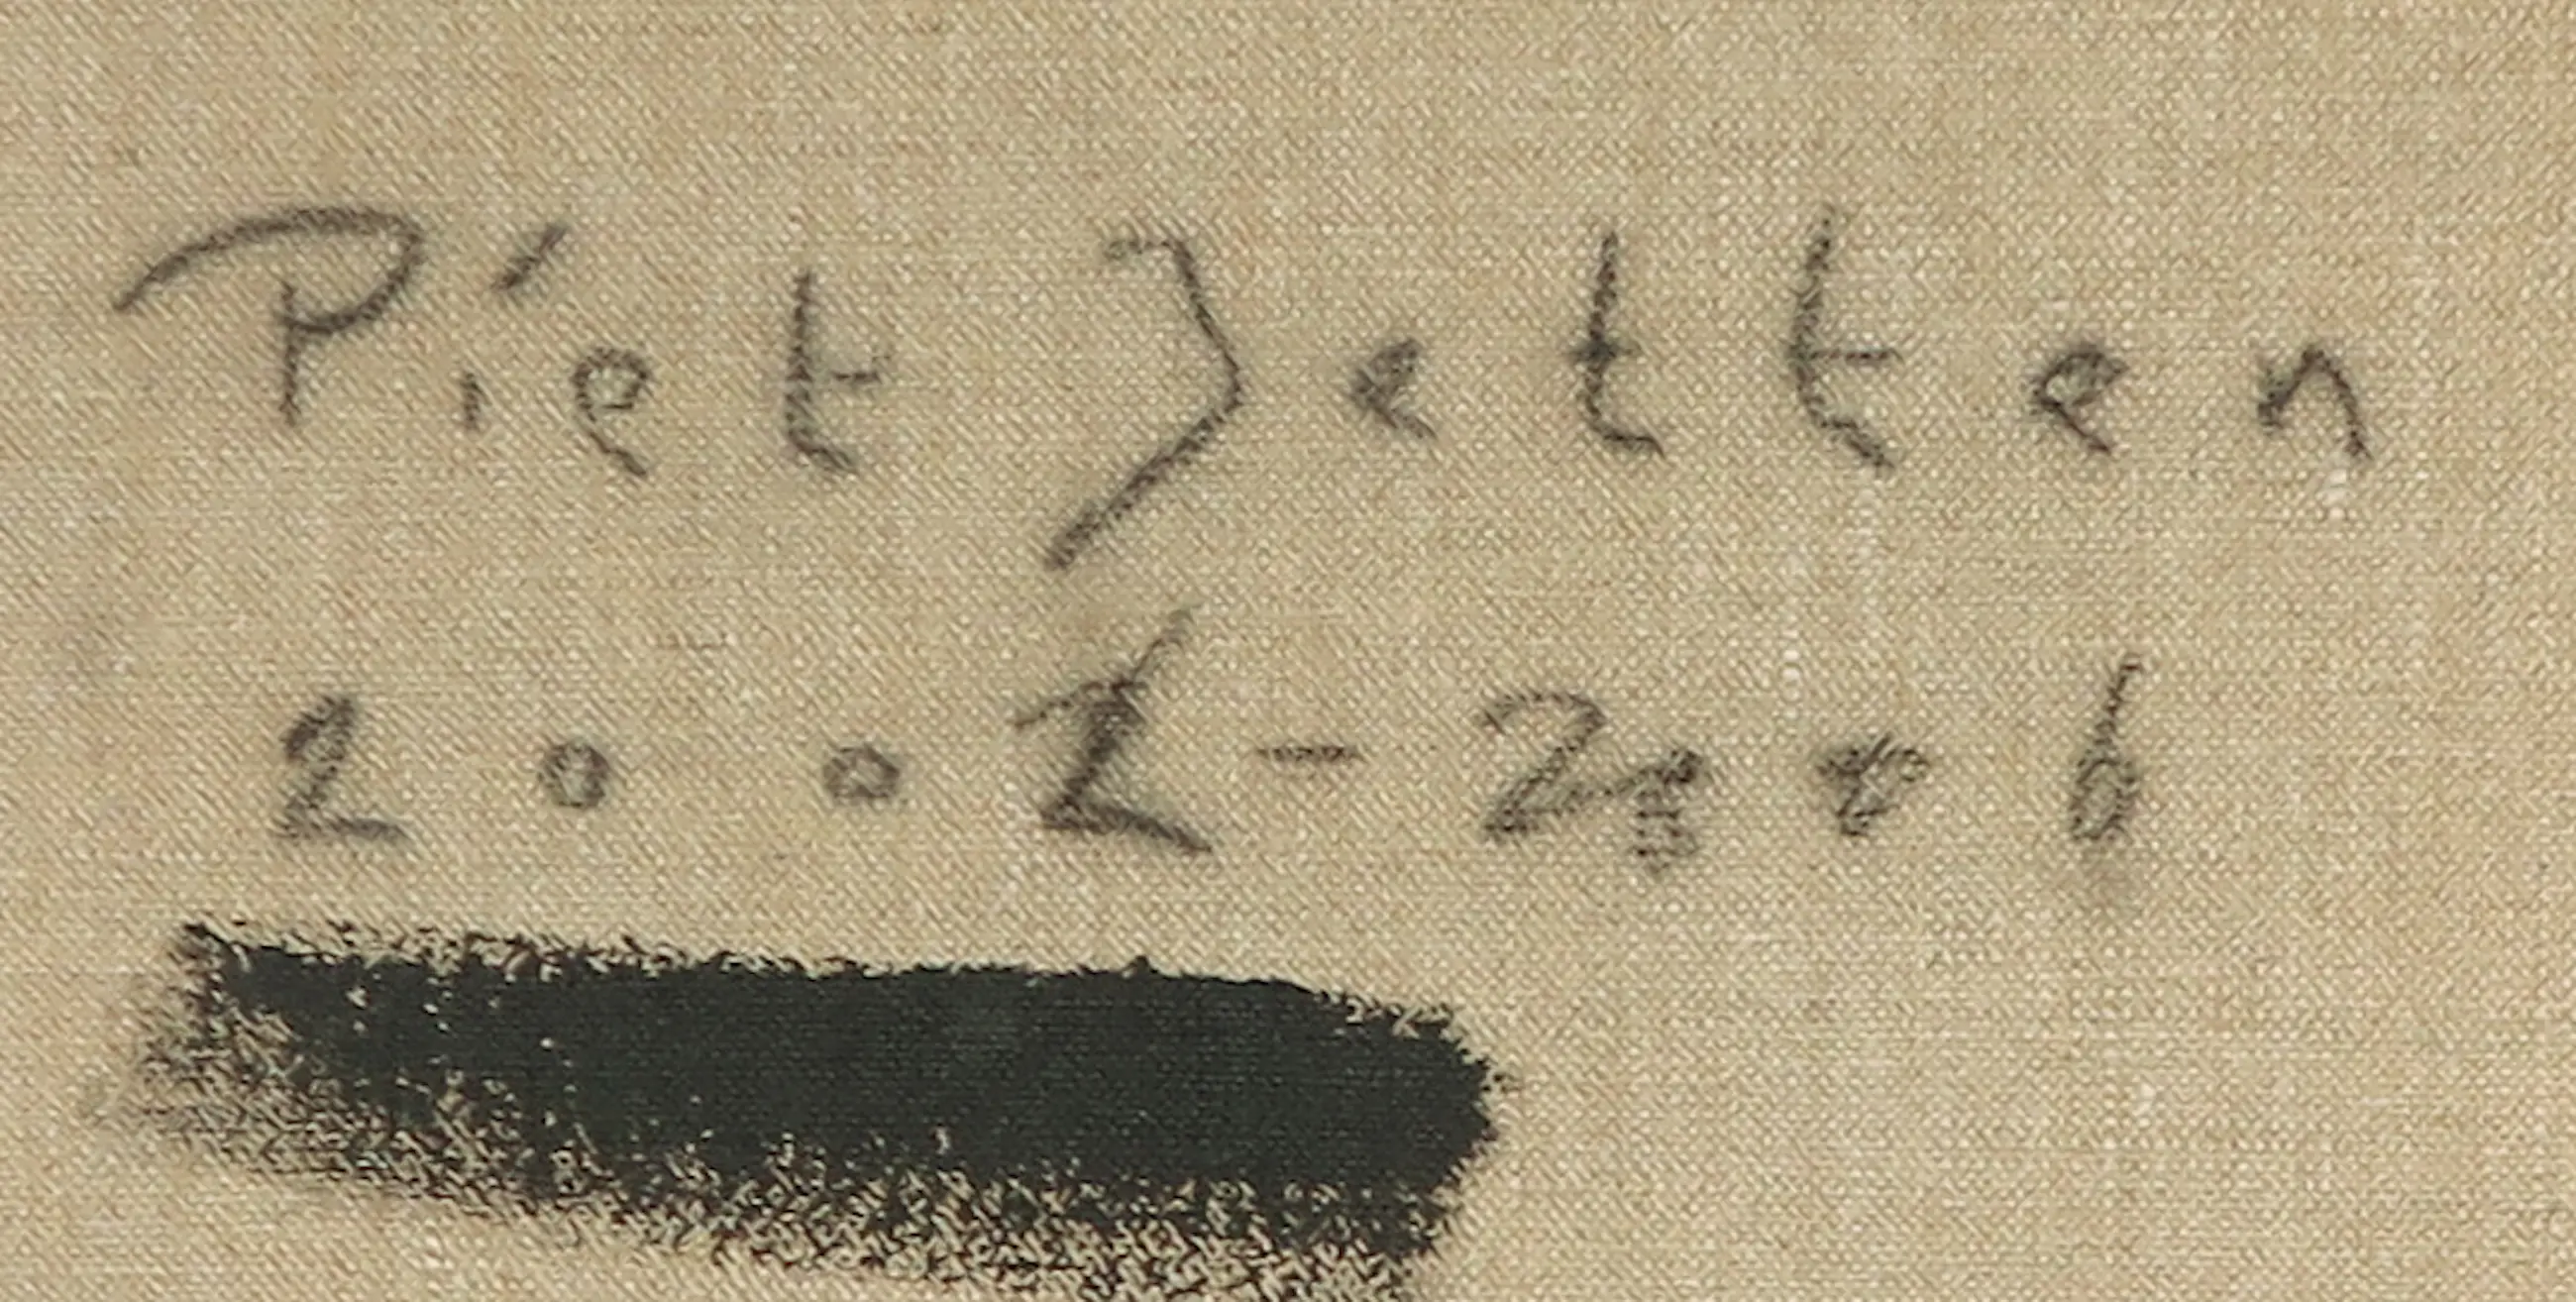 Piet Jetten
2002-2006